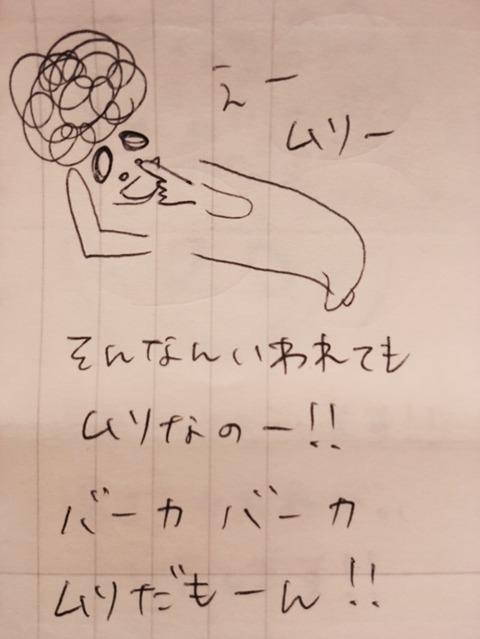 えー
ムリー
そんなんいわれても
ムリなのー!!
バーカ バーカ
ムリだもーん!!